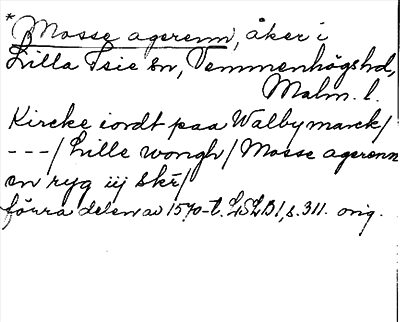 *Mosse agerenn, åker i
Lilla Isie sn, Vemmenhögs hd,
Malm. l.
Kircke iordt paa Walbymarck/
---/ Lille wongh/ Mosse agerenn
en ryg iij skr/
förra delen av 1570-t. LSLB1, s. 311. orig.